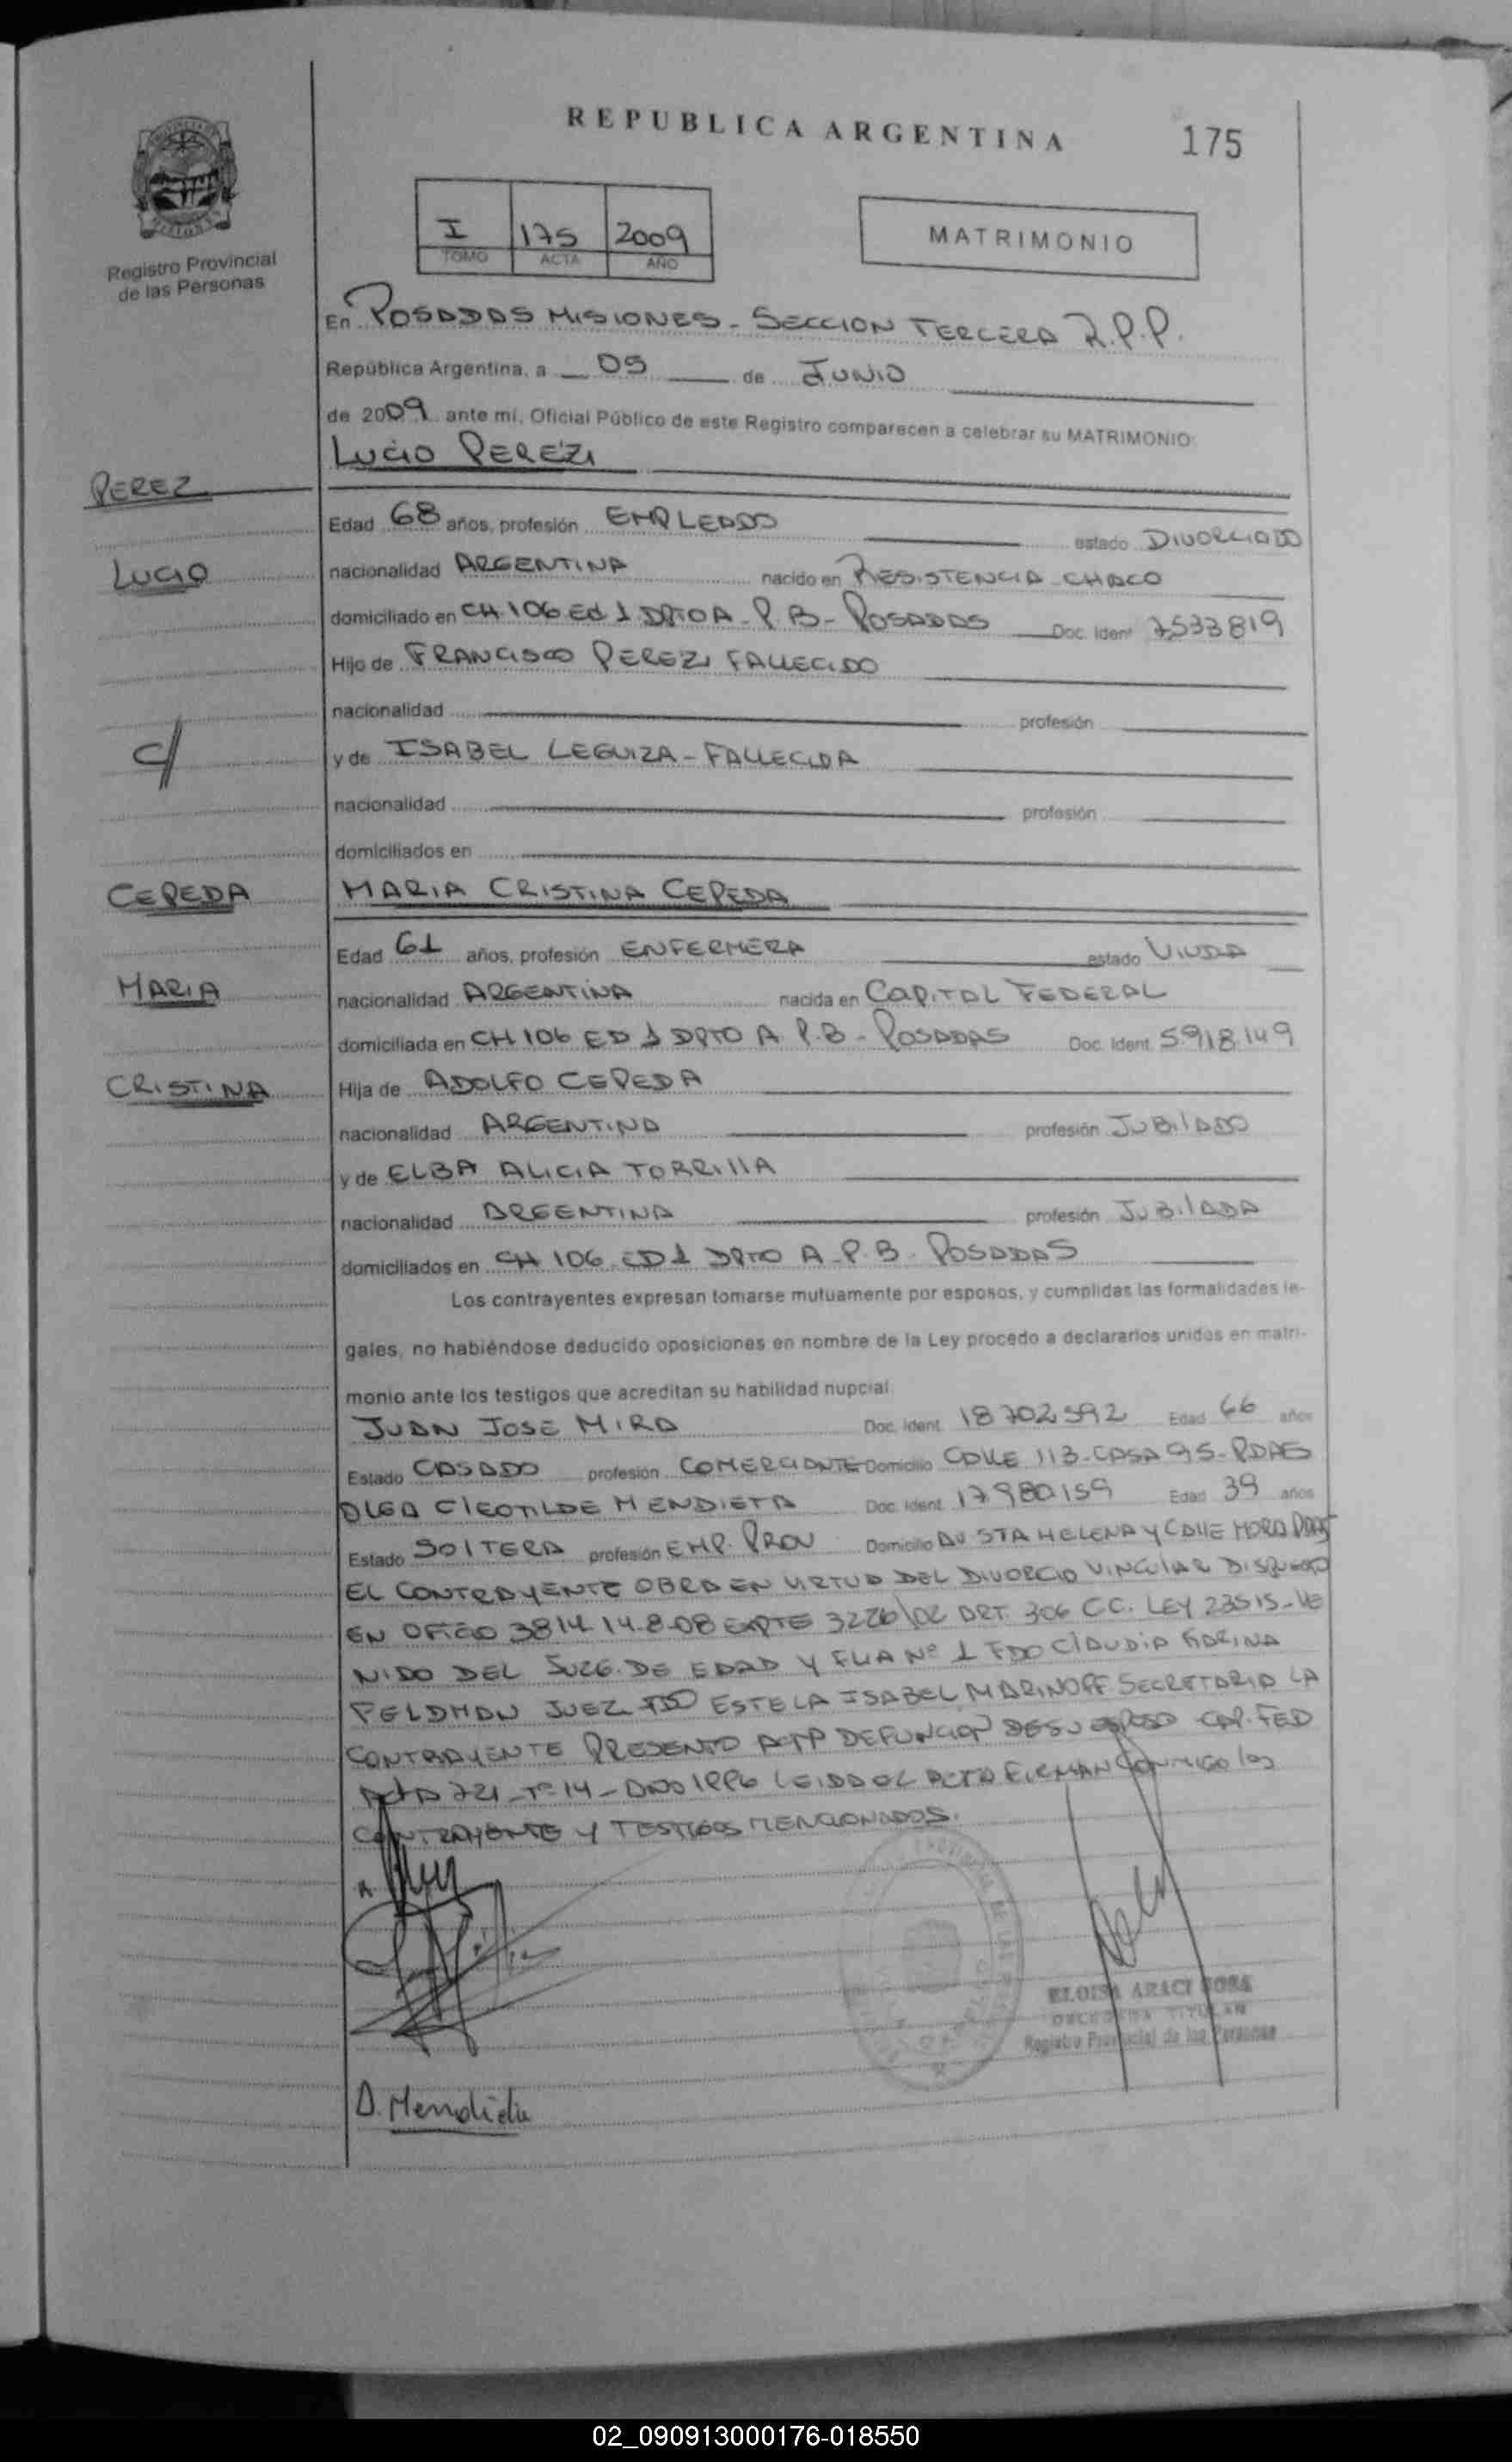 REPUBLICA ARGENTINA
175
I 175 2009
TOMO ACTA AÑO
MATRIMONIO
Registro Provincial
de las Personas
En POSADAS MISIONES - SECCION TERCERA R.P.P.
República Argentina, a 05 de JUNIO
de 2009 ante mí, Oficial Público de este Registro comparecen a celebrar su MATRIMONIO:
LUCIO PEREZ
PEREZ
Edad 68 años, profesión EMPLEADO estado DIVORCIADO
LUCIO
nacionalidad ARGENTINA nacido en RESISTENCIA CHACO
domiciliado en CH 106 Ed 1 DPTO A - P.B - POSADAS Doc. Ident. 7533819
Hijo de FRANCISCO PEREZ FALLECIDO
nacionalidad profesión
C/
y de ISABEL LEGUIZA - FALLECIDA
nacionalidad profesión
domiciliados en
CEPEDA
MARIA CRISTINA CEPEDA
Edad 61 años, profesión ENFERMERA estado VIUDA
MARIA
nacionalidad ARGENTINA nacida en CAPITAL FEDERAL
domiciliada en CH 106 ED 1 DPTO A P.B - POSADAS Doc. Ident. 5918149
CRISTINA
Hija de ADOLFO CEPEDA
nacionalidad ARGENTINA profesión JUBILADO
y de ELBA ALICIA TORRILLA
nacionalidad ARGENTINA profesión JUBILADA
domiciliados en CH 106 ED 1 DPTO A - P.B - POSADAS
Los contrayentes expresan tomarse mutuamente por esposos, y cumplidas las formalidades le-
gales, no habiéndose deducido oposiciones en nombre de la Ley procedo a declararlos unidos en matri-
monio ante los testigos que acreditan su habilidad nupcial.
JUAN JOSE MIRA Doc. Ident. 18702592 Edad 66 años
Estado CASADO profesión COMERCIANTE Domicilio CALLE 113 - CASA 95 - PDAS
OLGA CLEOTILDE MENDIETA Doc. Ident. 17980159 Edad 39 años
Estado SOLTERA profesión EMP. PROV Domicilio AV STA HELENA Y CALLE MORA PDAS
EL CONTRAYENTE OBRA EN VIRTUD DEL DIVORCIO VINCULAR DISPUESTO
EN OFICIO 3814 14-8-08 EXPTE 3226/02 ART. 306 C.C. LEY 23515 - VE
NIDO DEL JUZG. DE EDAD Y FLIA Nº 1 FDO CLAUDIA KARINA
FELDMAN JUEZ FDO ESTELA ISABEL MARINOFF SECRETARIA LA
CONTRAYENTE PRESENTO ACTA DEFUNCION DE SU ESPOSO CAP. FED
ACTA 721 - Tº 14 - AÑO 1996 LEIDA EL ACTA FIRMAN CONMIGO los
CONTRAYENTE Y TESTIGOS MENCIONADOS.
ELOISA ARACI SOSA
DELEGADA TITULAR
Registro Provincial de las Personas
O. Mendieta
02_090913000176-018550